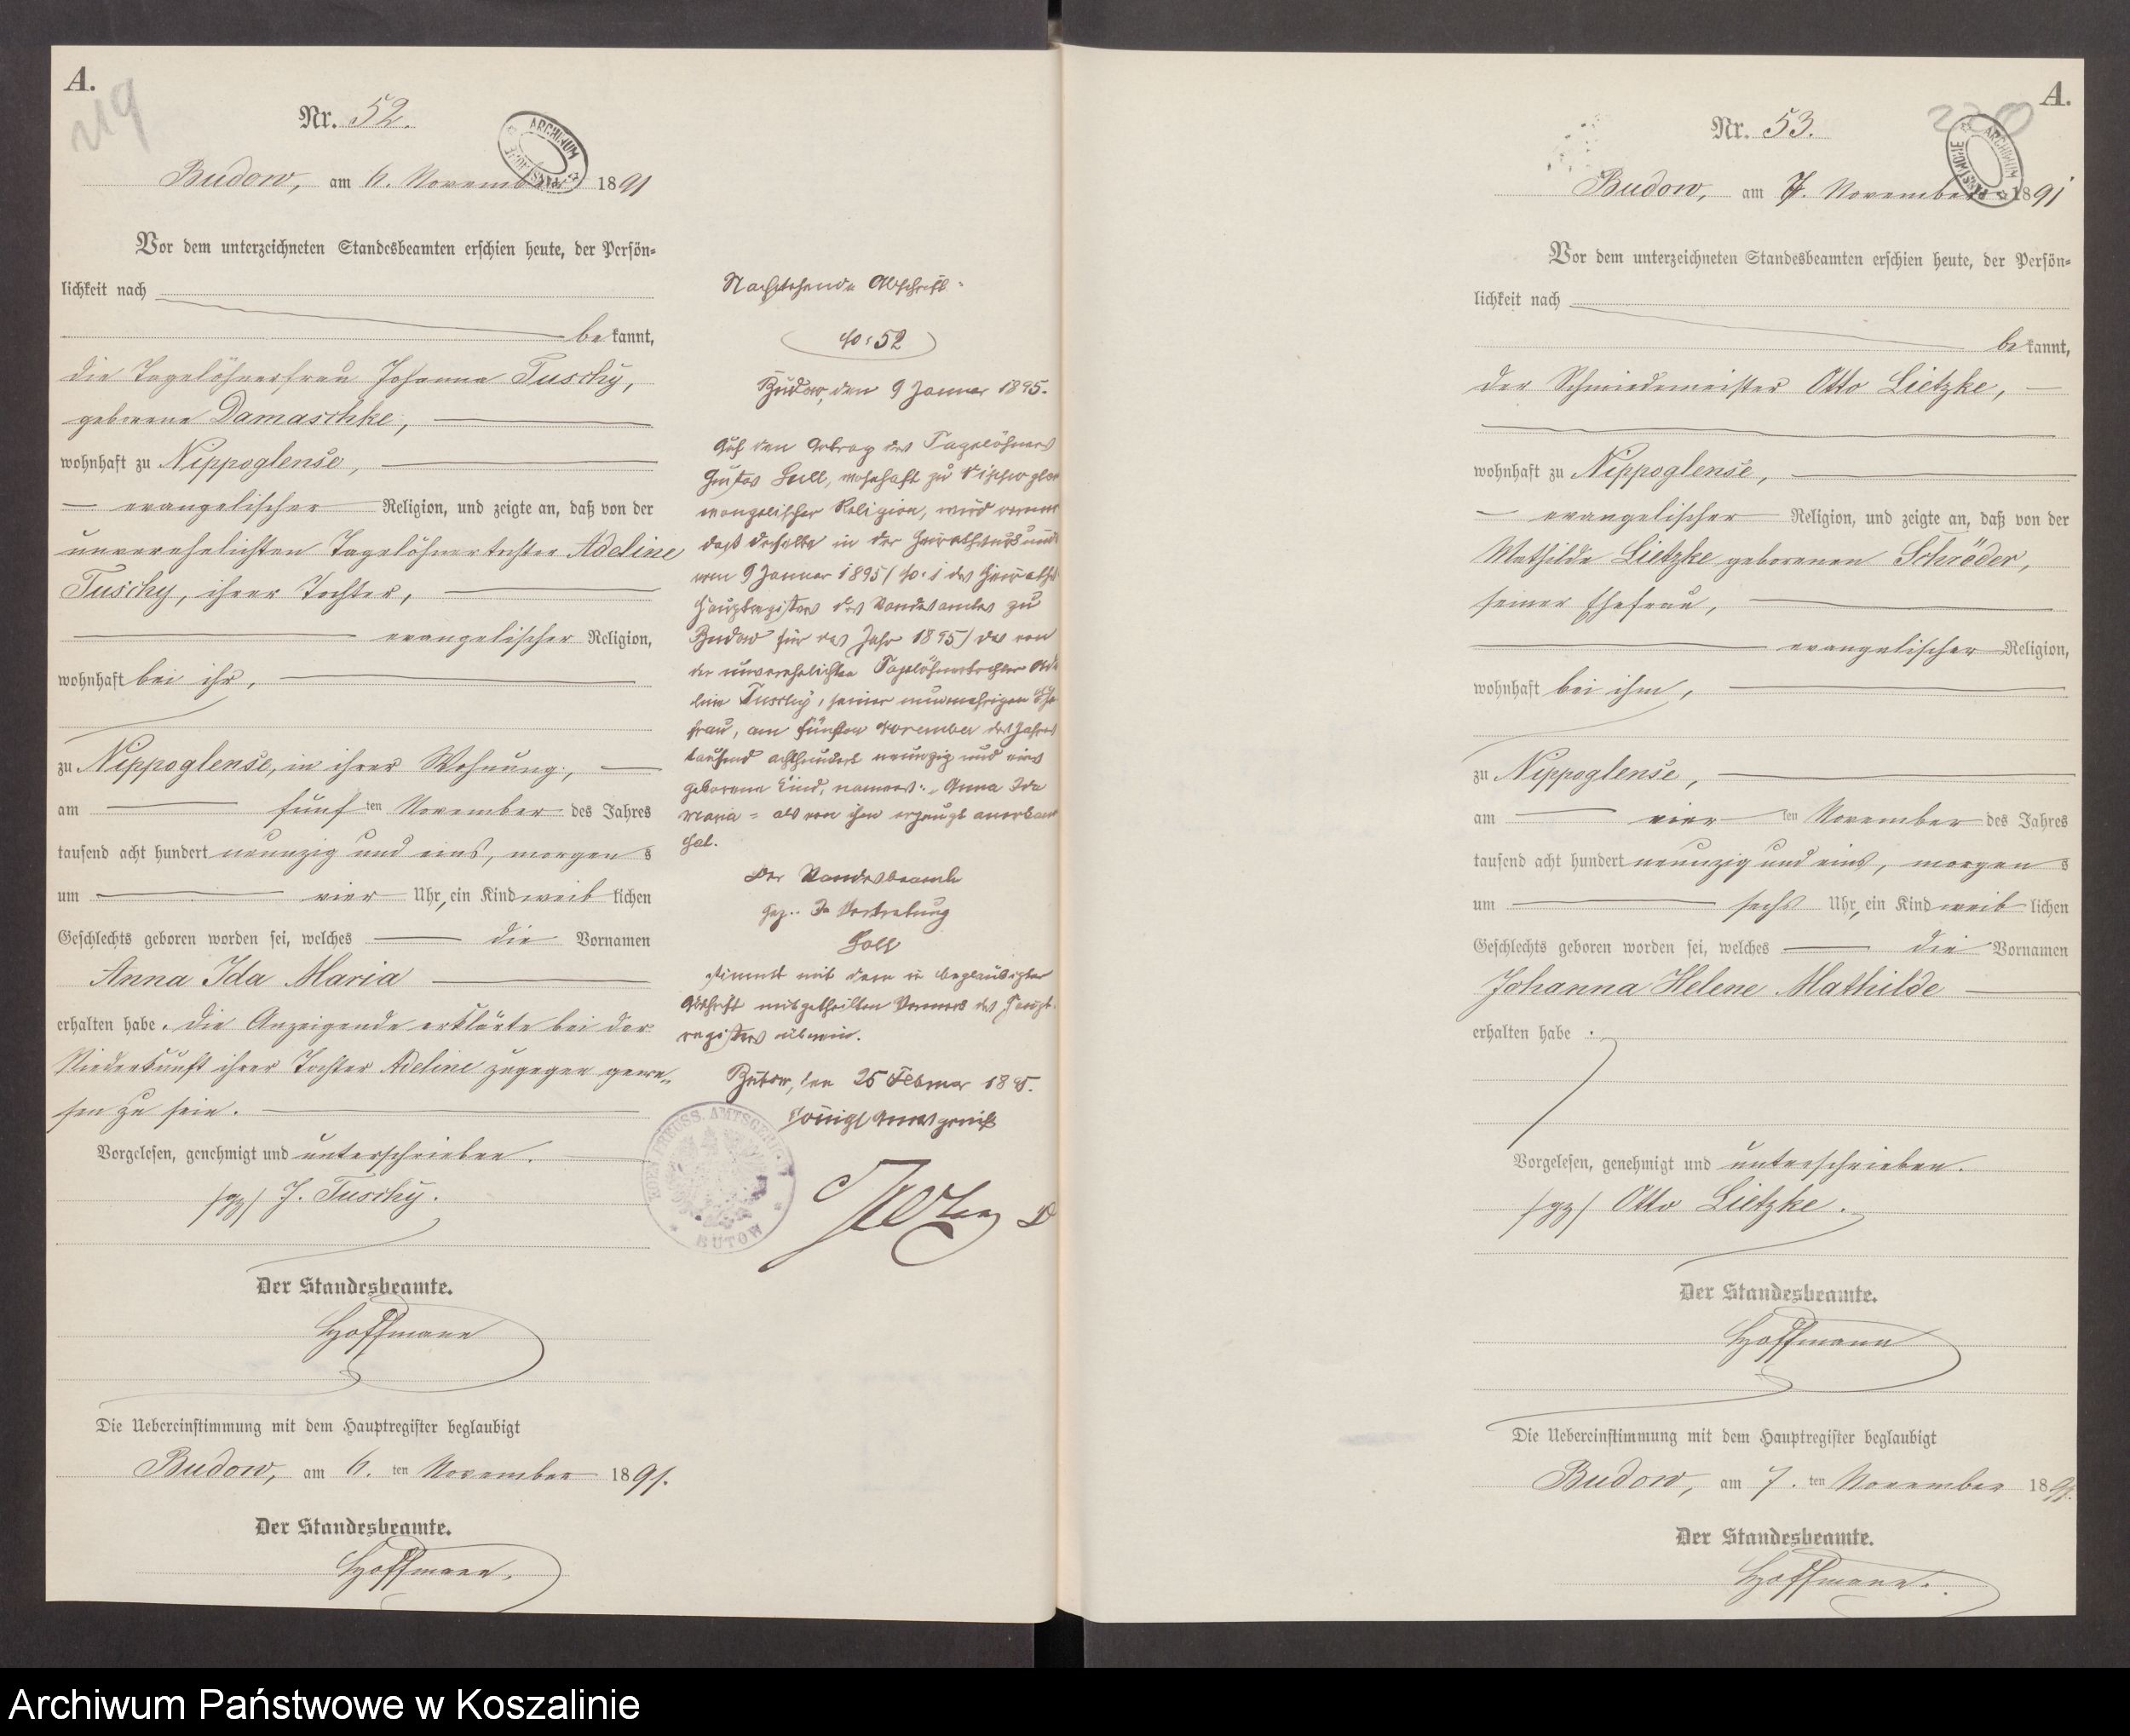 A.
219
Nr. 52.
ARCHIWUM
Budow, am 6. November 1891
Vor dem unterzeichneten Standesbeamten erschien heute, der Persön=
lichkeit nach
be kannt,
die Tagelöhnerfrau Johanna Tuschy,
geborene Damaschke,
wohnhaft zu Nippoglense,
evangelischer Religion, und zeigte an, daß von der
unverehelichten Tagelöhnertochter Adeline
Tuschy, ihrer Tochter,
evangelischer Religion,
wohnhaft bei ihr,
zu Nippoglense, in ihrer Wohnung,
am fünf ten November des Jahres
tausend acht hundert neunzig und eins, morgen s
um vier Uhr, ein Kind weib lichen
Geschlechts geboren worden sei, welches die Vornamen
Anna Ida Maria
erhalten habe. Die Anzeigende erklärte bei der
Niederkunft ihrer Tochter Adeline zugegen gewe=
sen zu sein.
Vorgelesen, genehmigt und unterschrieben.
/gz/ J. Tuschy.
Der Standesbeamte.
Hoffmann
Die Uebereinstimmung mit dem Hauptregister beglaubigt
Budow, am 6. ten November 1891.
Der Standesbeamte.
Hoffmann.
Nachstehende Abschrift:
No: 52
den 9 Januar 1895.
Auf den Antrag des Tagelöhners
Gustav wohnhaft zu
evangelischer Religion, wird
daß derselbe in der Heirathsurkunde
vom 9 Januar 1895 / No: 1 des Heiraths
Hauptregisters des Standesamtes zu
Budow für das Jahr 1895/ das von
der unverehelichten Tagelöhnertochter Ade
line Tuschy, seiner nunmehrigen Ehe
frau, am fünften November des Jahres
tausend achthundert neunzig und eins
geborene Kind, namens: "Anna Ida
Maria" als von ihm erzeugt anerkannt
hat.
Der Standesbeamte
gez.. In Vertretung
stimmt mit dem in beglaubigter
Abschrift mitgetheilten Vermerk des Haupt-
registers überein.
Bütow, den 25 Februar 1895.
Königl Amtsgericht
KÖNIGL. PREUSS. AMTSGERICHT
BÜTOW
A.
220
Nr. 53.
ARCHIWUM PAŃSTWOWE
Budow, am 7. November 1891
Vor dem unterzeichneten Standesbeamten erschien heute, der Persön=
lichkeit nach
be kannt,
der Schmiedemeister Otto Lietzke,
wohnhaft zu Nippoglense,
evangelischer Religion, und zeigte an, daß von der
Mathilde Lietzke geborenen Schröder,
seiner Ehefrau,
evangelischer Religion,
wohnhaft bei ihm,
zu Nippoglense,
am vier ten November des Jahres
tausend acht hundert neunzig und eins, morgen s
um sechs Uhr, ein Kind weib lichen
Geschlechts geboren worden sei, welches die Vornamen
Johanna Helene Mathilde
erhalten habe.
Vorgelesen, genehmigt und unterschrieben.
/gz/ Otto Lietzke.
Der Standesbeamte.
Hoffmann
Die Uebereinstimmung mit dem Hauptregister beglaubigt
Budow, am 7. ten November 1891.
Der Standesbeamte.
Hoffmann.
Archiwum Państwowe w Koszalinie